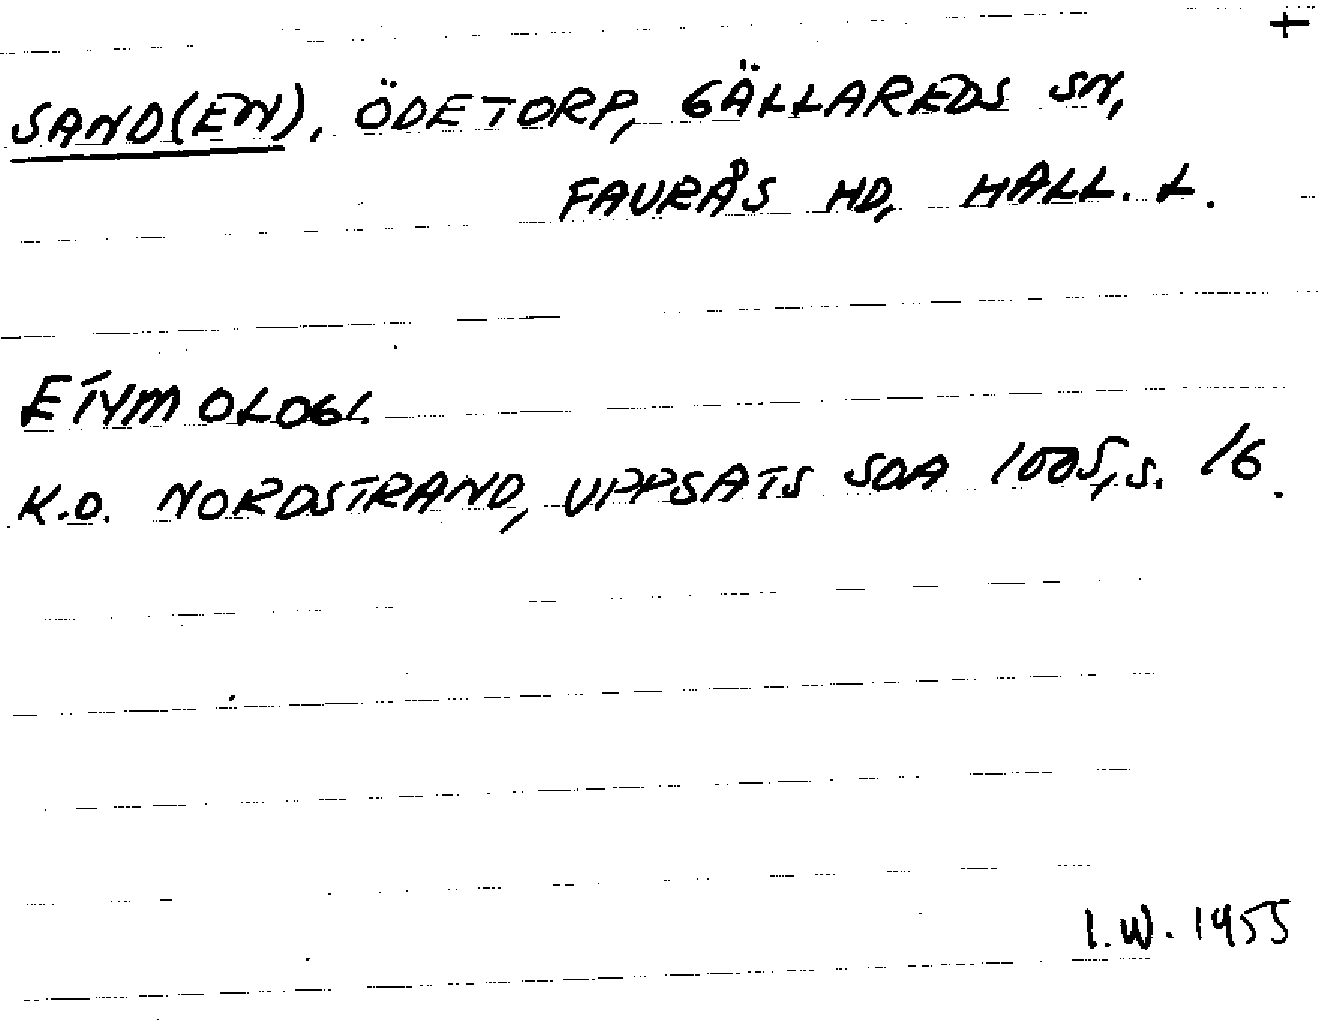 +
SAND(EN), ÖDETORP, GÄLLAREDS SN,
FAURÅS HD, HALL. L.
ETYMOLOGI.
K.O. NORDSTRAND, UPPSATS SOA 1005, s. 16.
I.W. 1955